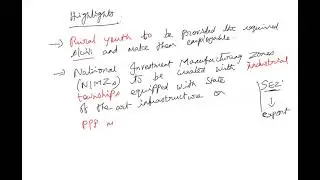 Highlights
→ Rural youth to be provided the required
skills and make them employable.
→ National Investment Manufacturing Zones
(NIMZs) to be created with industrial
townships equipped with State
of the art infrastructure on
PPP
SEZ
↓
export